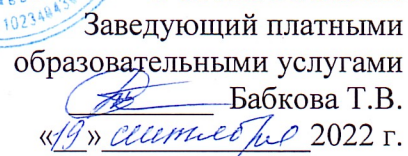 Заведующий платными
образовательными услугами
Бабкова Т.В.
«19» сентября 2022 г.